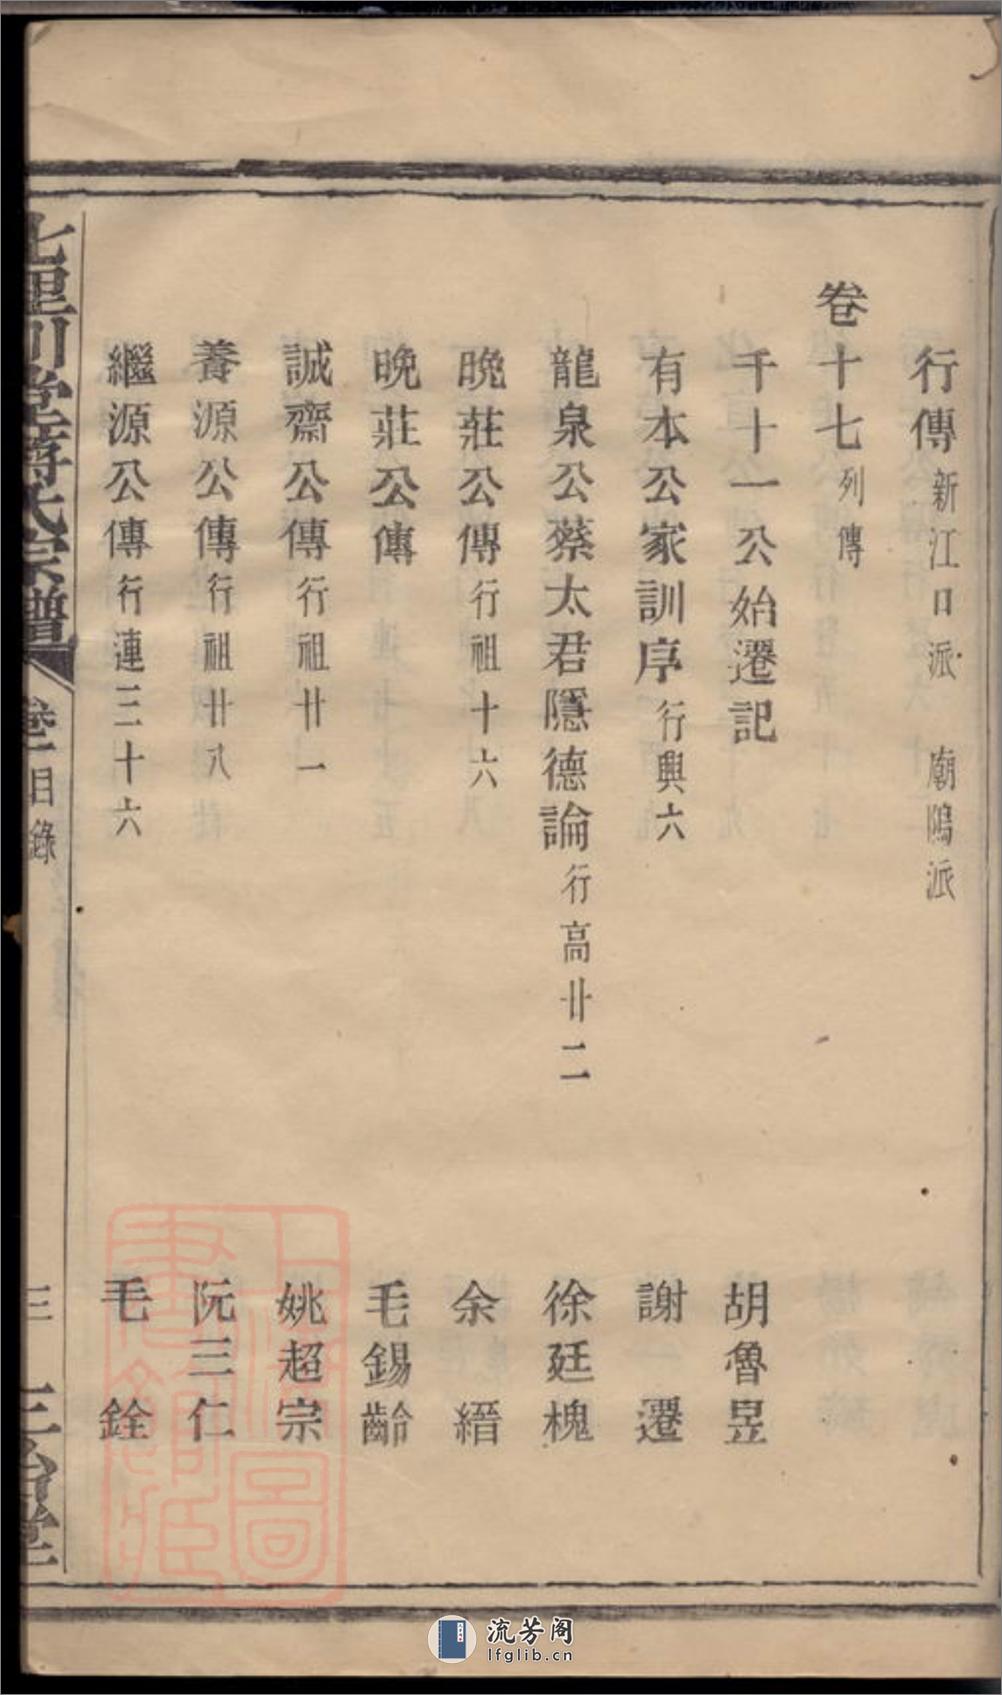 行傳 新江口派 廟隝派
卷十七 列傳
千十一公始遷記 胡魯昱
有本公家訓序 行興六 謝遷
龍泉公蔡太君隱德論 行高廿二 徐廷槐
晚莊公傳 行祖十六 余縉
晚莊公傳 毛錫齡
誠齋公傳 行祖廿一 姚超宗
養源公傳 行祖廿八 阮三仁
繼源公傳 行連三十六 毛銓
氏宗譜 目錄 三
流芳阁
lfglib.cn